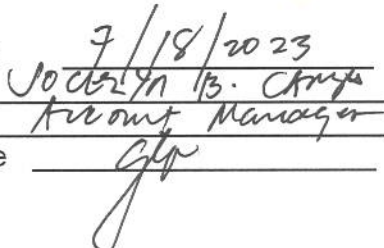 7/18/2023
Jocelyn B.
Account Manager
e